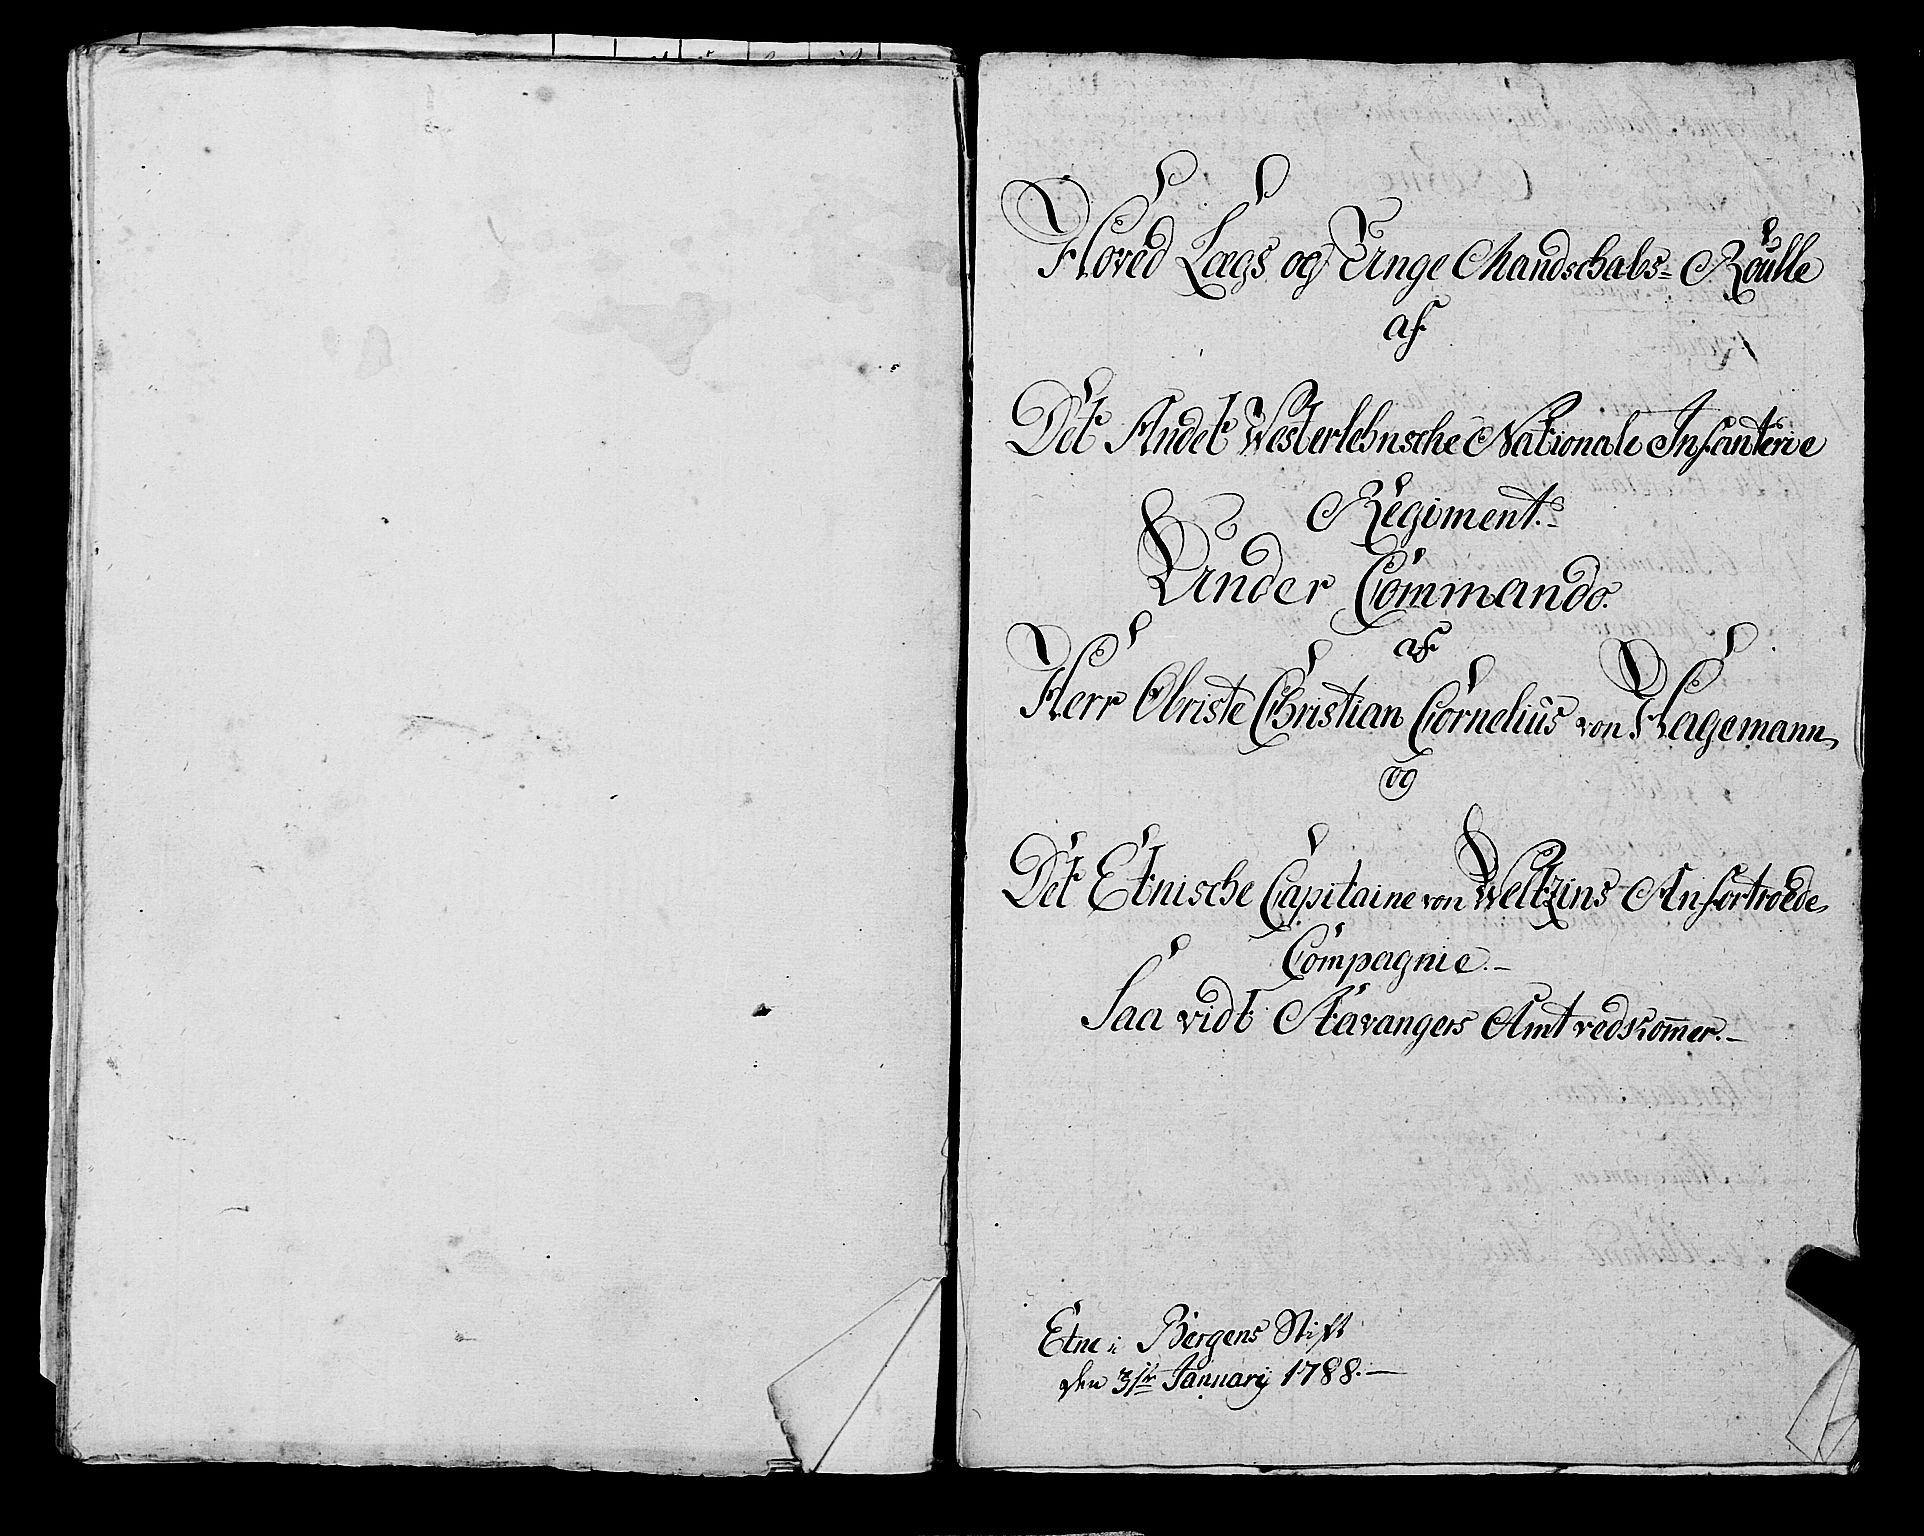 Hoved Lægs og Unge Mandschabs- Roulle
af
Det Andet Westerlehnsche Nationale Infanterie
Regiment.-
Under Commando.
af
Herr Obriste Christian Cornelius von Hagemann,
og
Det Etnische Capitaine von Weltzins Anfortroede
Compagnie.-
Saa vidt Stavangers Amt vedkom̅er.-
Etne i Bergens Stift
den 3te January 1788.-